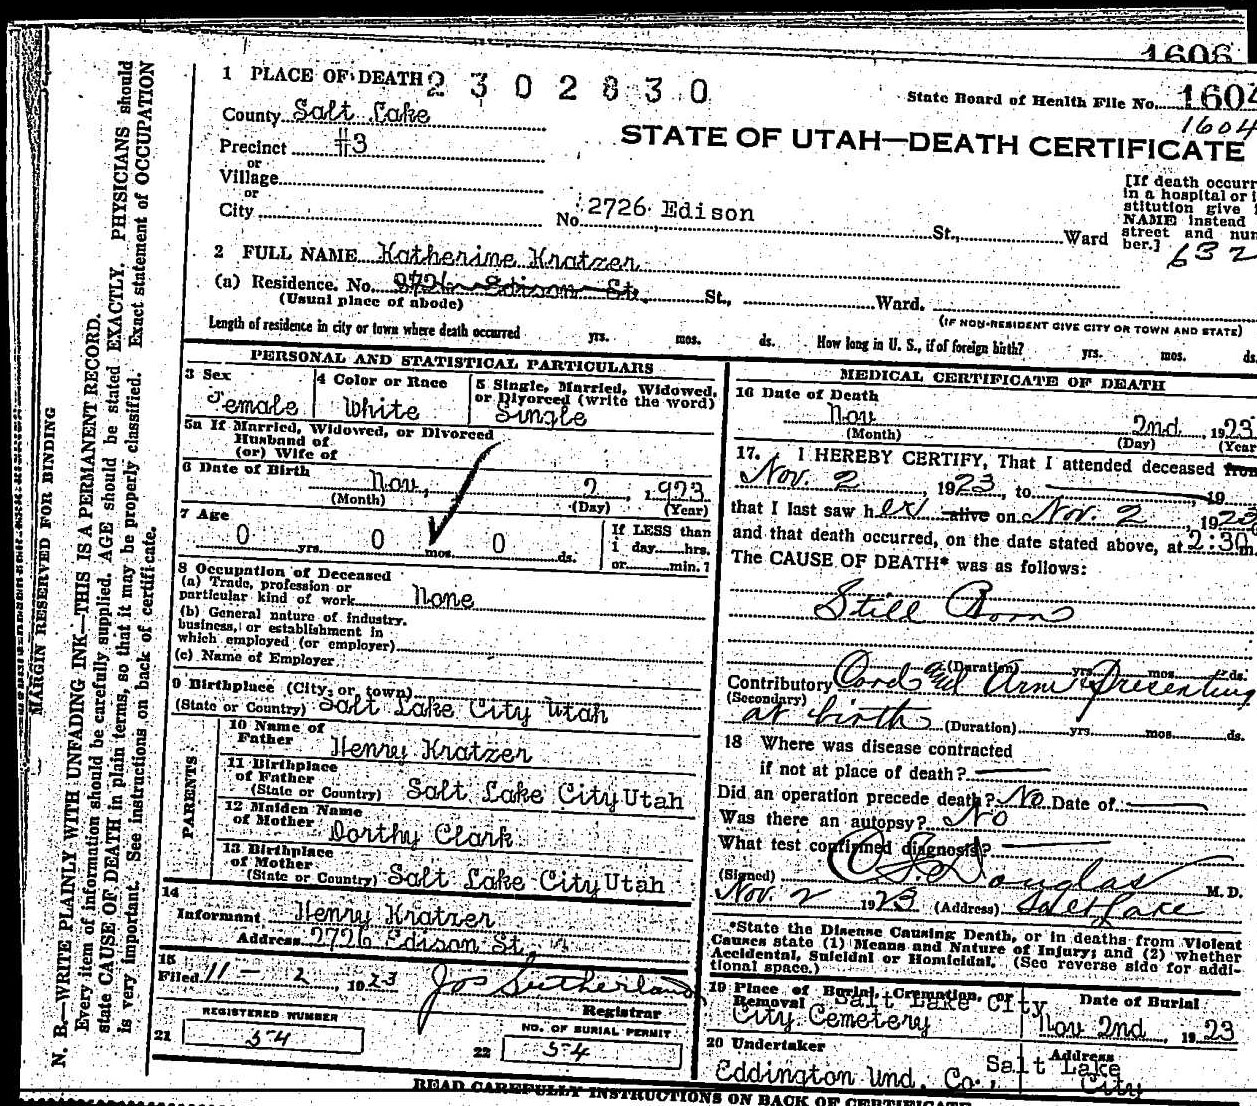 1606
1 PLACE OF DEATH 2302830
State Board of Health File No. 1604
1604
County Salt Lake
STATE OF UTAH—DEATH CERTIFICATE
Precinct #3
or
Village
or
City
No. 2726 Edison St., Ward
[If death occurr
in a hospital or i
stitution give i
NAME instead
street and num
ber.]
632
2 FULL NAME Katherine Kratzer
(a) Residence. No. 2726 Edison St. St., Ward.
(Usual place of abode)
(IF NON-RESIDENT GIVE CITY OR TOWN AND STATE)
Length of residence in city or town where death occurred yrs. mos. ds. How long in U. S., if of foreign birth? yrs. mos. ds.
PERSONAL AND STATISTICAL PARTICULARS
3 Sex
Female
4 Color or Race
White
5 Single, Married, Widowed,
or Divorced (write the word)
Single
5a If Married, Widowed, or Divorced
Husband of
(or) Wife of
6 Date of Birth Nov, 2, 1923
(Month) (Day) (Year)
7 Age
0 yrs. 0 mos. 0 ds.
If LESS than
1 day hrs.
or min.?
8 Occupation of Deceased
(a) Trade, profession or
particular kind of work None
(b) General nature of industry,
business, or establishment in
which employed (or employer)
(c) Name of Employer
9 Birthplace (City, or town)
(State or Country) Salt Lake City Utah
PARENTS
10 Name of
Father Henry Kratzer
11 Birthplace
of Father
(State or Country) Salt Lake City Utah
12 Maiden Name
of Mother Dorthy Clark
13 Birthplace
of Mother
(State or Country) Salt Lake City Utah
14
Informant Henry Kratzer
Address 2726 Edison St.
15
Filed 11-2, 1923 Jos Sutherland
Registrar
REGISTERED NUMBER
21 54
NO. OF BURIAL PERMIT
22 54
MEDICAL CERTIFICATE OF DEATH
16 Date of Death
Nov 2nd, 1923
(Month) (Day) (Year
17. I HEREBY CERTIFY, That I attended deceased from
Nov. 2 1923, to 19
that I last saw her alive on Nov. 2, 1923
and that death occurred, on the date stated above, at 2:30 m.
The CAUSE OF DEATH* was as follows:
Still Born
(Duration) yrs. mos. ds.
Contributory Cord and Arm Presenting
(Secondary)
at birth (Duration) yrs. mos. ds.
18 Where was disease contracted
if not at place of death?
Did an operation precede death? No Date of
Was there an autopsy? No
What test confirmed diagnosis?
(Signed) Douglas M. D.
Nov. 2 1923 (Address) Salt Lake
*State the Disease Causing Death, or in deaths from Violent
Causes state (1) Means and Nature of Injury; and (2) whether
Accidental, Suicidal or Homicidal. (See reverse side for addi-
tional space.)
19 Place of Burial, Cremation, or
Removal Salt Lake City
City Cemetery
Date of Burial
Nov 2nd, 1923
20 Undertaker
Eddington Und. Co.,
Address
Salt Lake
City
READ CAREFULLY INSTRUCTIONS ON BACK OF CERTIFICATE
MARGIN RESERVED FOR BINDING
N. B.—WRITE PLAINLY WITH UNFADING INK—THIS IS A PERMANENT RECORD.
Every item of information should be carefully supplied. AGE should be stated EXACTLY. PHYSICIANS should
state CAUSE OF DEATH in plain terms, so that it may be properly classified. Exact statement of OCCUPATION
is very important. See instructions on back of certificate.